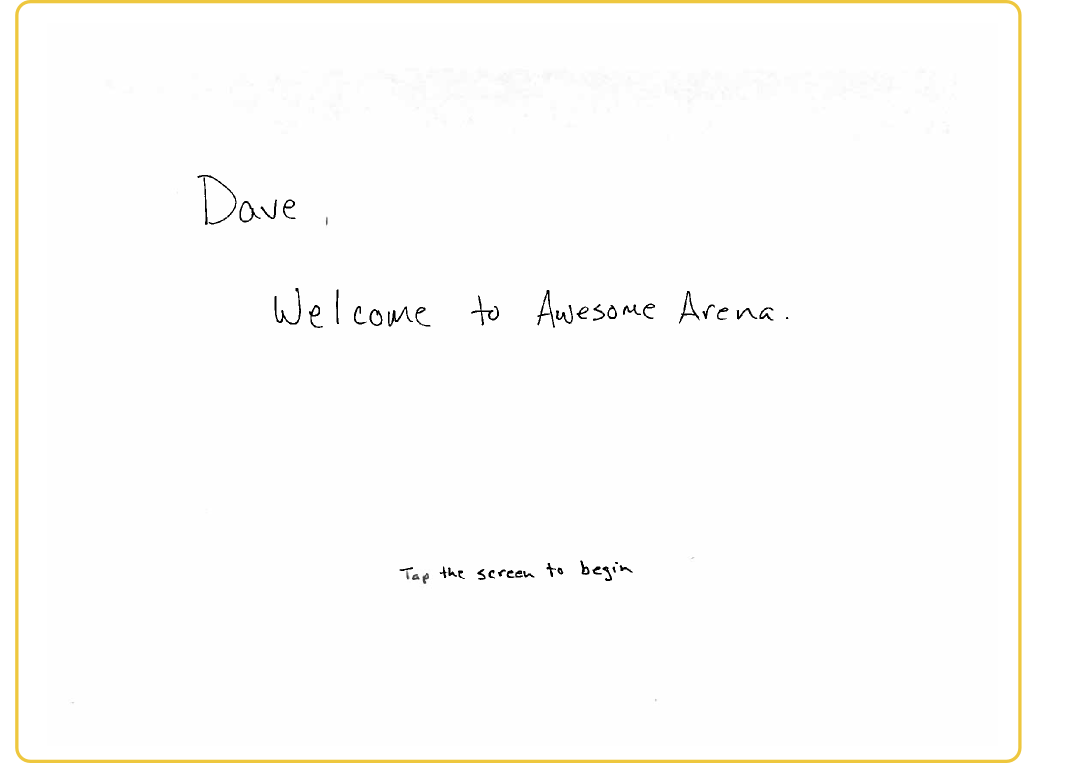 Dave,
Welcome to Awesome Arena.
Tap the screen to begin